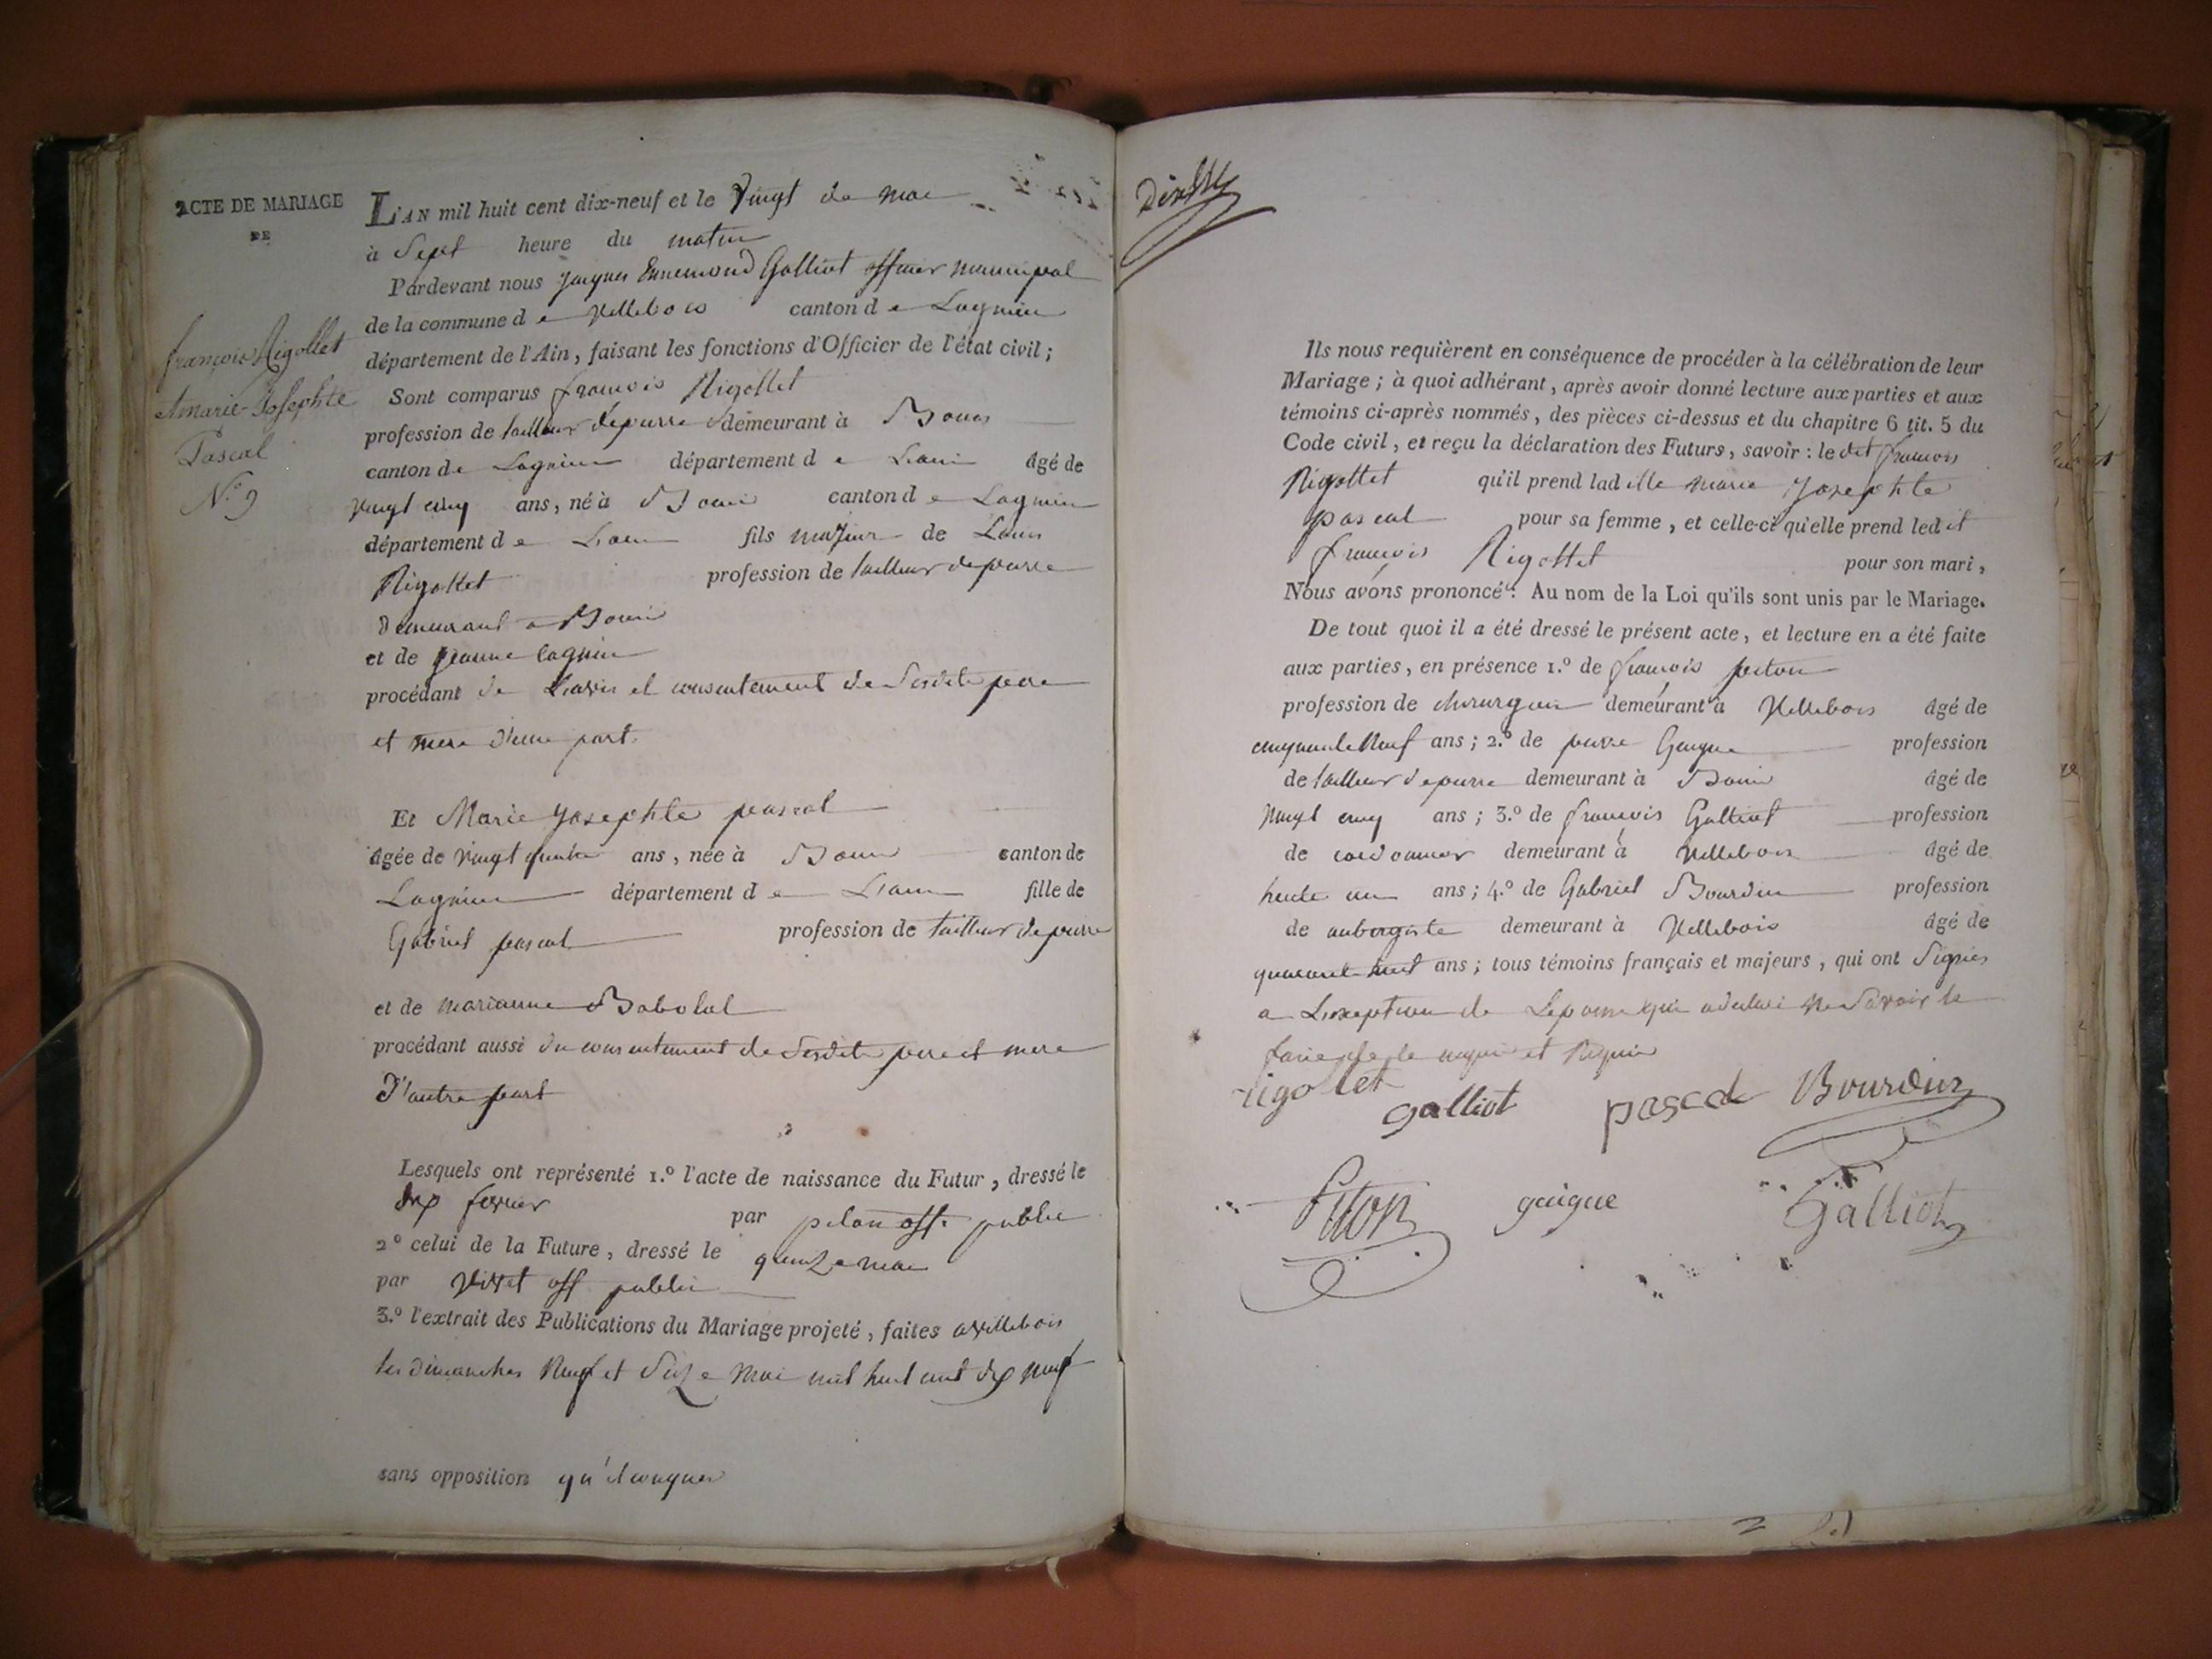 ACTE DE MARIAGE
DE
françois Rigollet
et marie-Josephte
Pascal
N.º 9
L'AN mil huit cent dix-neuf et le Vingt de mai
à Sept heure du matin
Pardevant nous Jacques Ennemond Galliot officier municipal
de la commune de Villebois canton de Lagnieu
département de l'Ain, faisant les fonctions d'Officier de l'état civil;
Sont comparus françois Rigollet
profession de tailleur depierre demeurant à
canton de Lagnieu département de Liain âgé de
vingt cinq ans, né à canton de Lagnieu
département de Liain fils majeur de Louis
Rigollet profession de tailleur depierre
demeurant a
et de jeanne lagnieu
procédant de Lavis et consentement de Sesdits pere
et mere d'une part.
Et Marie Josephte pascal
âgée de vingt quatre ans, née à canton de
Lagnieu département de Liain fille de
Gabriel pascal profession de tailleur de pierre
et de marianne Babolat
procédant aussi du consentement de Sesdits pere et mere
D'autre part
Lesquels ont représenté 1.º l'acte de naissance du Futur, dressé le
dix fevrier par off. public
2º celui de la Future, dressé le quinze mai
par off public
3.º l'extrait des Publications du Mariage projeté, faites avillebois
les dimanches Neuf et Seize Mai mil huit cent dix neuf
sans opposition
Ils nous requièrent en conséquence de procéder à la célébration de leur
Mariage; à quoi adhérant, après avoir donné lecture aux parties et aux
témoins ci-après nommés, des pièces ci-dessus et du chapitre 6 tit. 5 du
Code civil, et reçu la déclaration des Futurs, savoir: le dit françois
Rigollet qu'il prend ladite marie Josephte
pascal pour sa femme, et celle-ci qu'elle prend ledit
françois Rigollet pour son mari,
Nous avons prononcé: Au nom de la Loi qu'ils sont unis par le Mariage.
De tout quoi il a été dressé le présent acte, et lecture en a été faite
aux parties, en présence 1.º de françois fiton
profession de chirurgien demeurant à Villebois âgé de
cinquante Neuf ans; 2.º de pierre Guigue profession
de tailleur depierre demeurant à âgé de
Vingt cinq ans; 3.º de françois Galliot profession
de cordonnier demeurant à Villebois âgé de
trente un ans; 4.º de Gabriel Bourdin profession
de aubergiste demeurant à Villebois âgé de
quarante huit ans; tous témoins français et majeurs, qui ont Signés
a Lexception de Lepouse qui adeclaré Ne Savoir le
faire de le requis et Requise
rigolet
galliot pascal Bourdin
fiton guigue Galliot